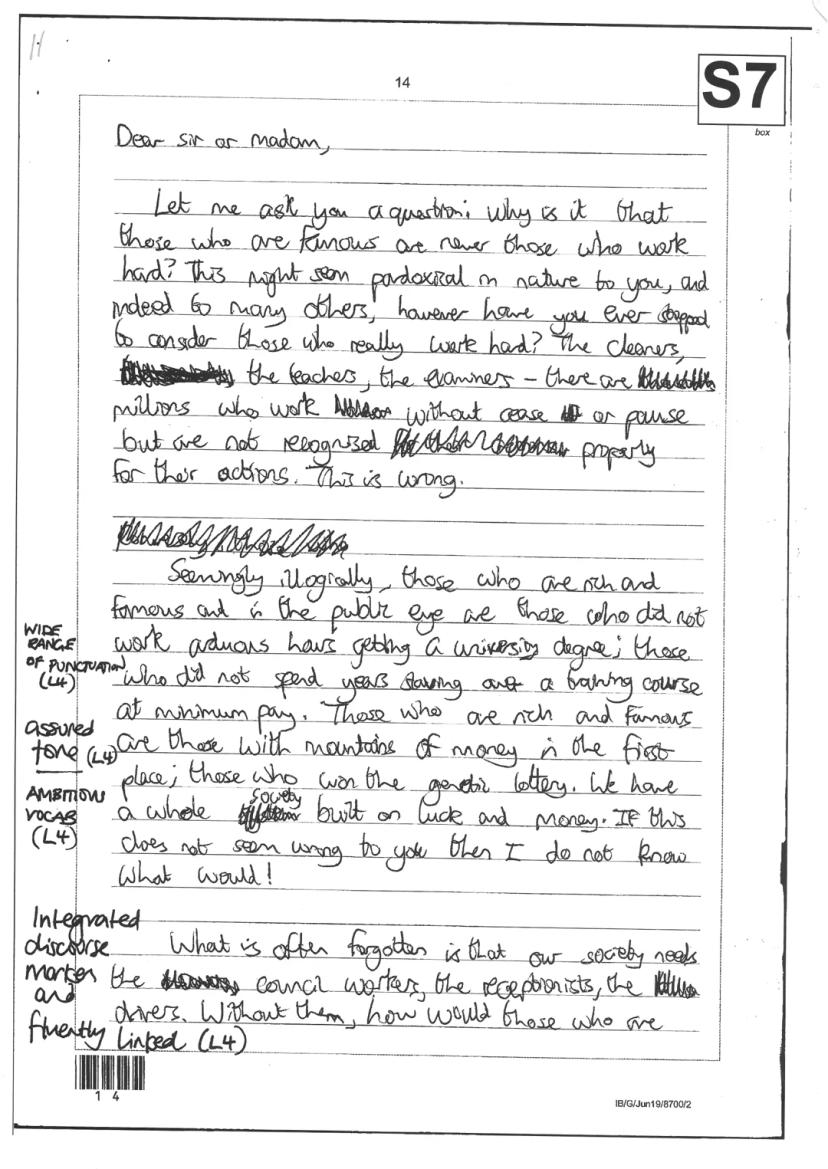 14
S7
box
Dear sir or madam,
Let me ask you a question: Why is it that
those who are famous are never those who work
hard? This might seem pardoxical in nature to you, and
indeed to many others, however have you ever stopped
to consider those who really work hard? The cleaners,
the teachers, the examiners – there are
millions who work without cease or pause
but are not recognised properly
for their actions. This is wrong.
Seemingly illogically, those who are rich and
famous and in the public eye are those who did not
work arduous hours getting a university degree; those
who did not spend years slaving over a training course
at minimum pay. Those who are rich and famous
are those with mountains of money in the first
place; those who won the genetic lottery. We have
a whole society built on luck and money. If this
does not seem wrong to you then I do not know
what would!
What is often forgotten is that our society needs
the council workers, the receptionists, the
drivers. Without them, how would those who are
WIDE
RANGE
OF PUNCTUATION
(L4)
assured
tone (L4)
AMBITIOUS
VOCAB
(L4)
Integrated
discourse
marker
and
fluently linked (L4)
1 4
IB/G/Jun19/8700/2